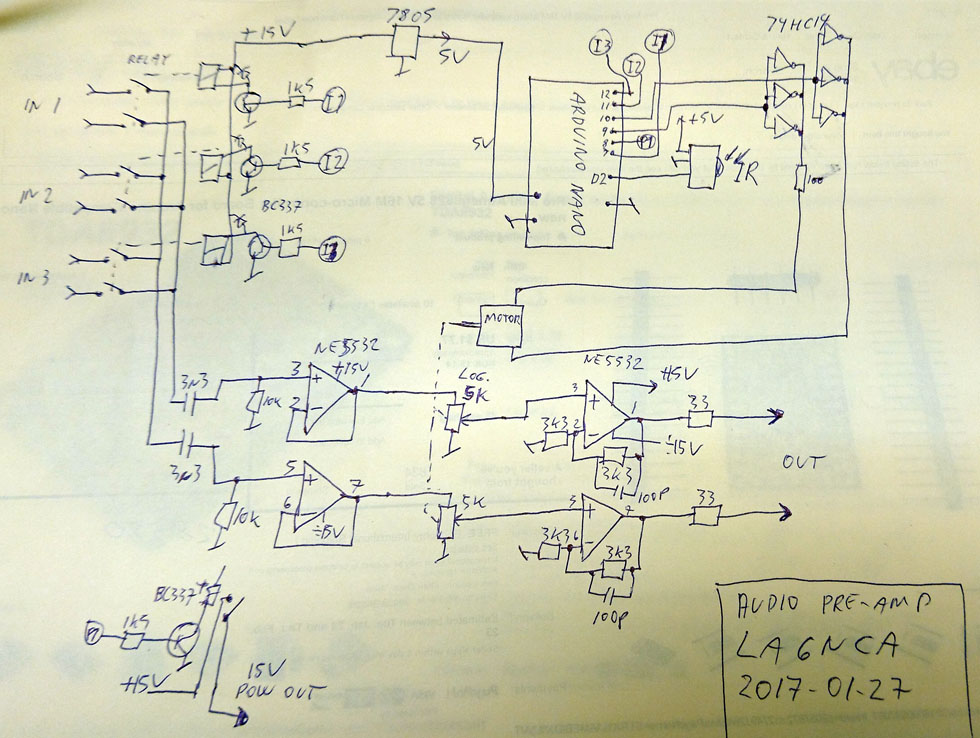 7805
74HC14
+15V
5V
RELAY
I3
I2
I1
IN 1
1K5
I1
12
11
10
9
8
ARDUINO NANO
5V
+5V
D2
IR
100
1K5
I2
IN 2
BC337
1K5
IN 3
MOTOR
NE5532
+15V
3
1
2
LOG.
5K
NE5532
+15V
3
1
2
33
÷15V
3K3
3K3
100P
OUT
3N3
10K
3N3
5
7
6
÷15V
10K
5K
5
7
33
3K3
6
3K3
100P
BC337
1K5
+15V
15V
POW OUT
AUDIO PRE-AMP
LA6NCA
2017-01-27